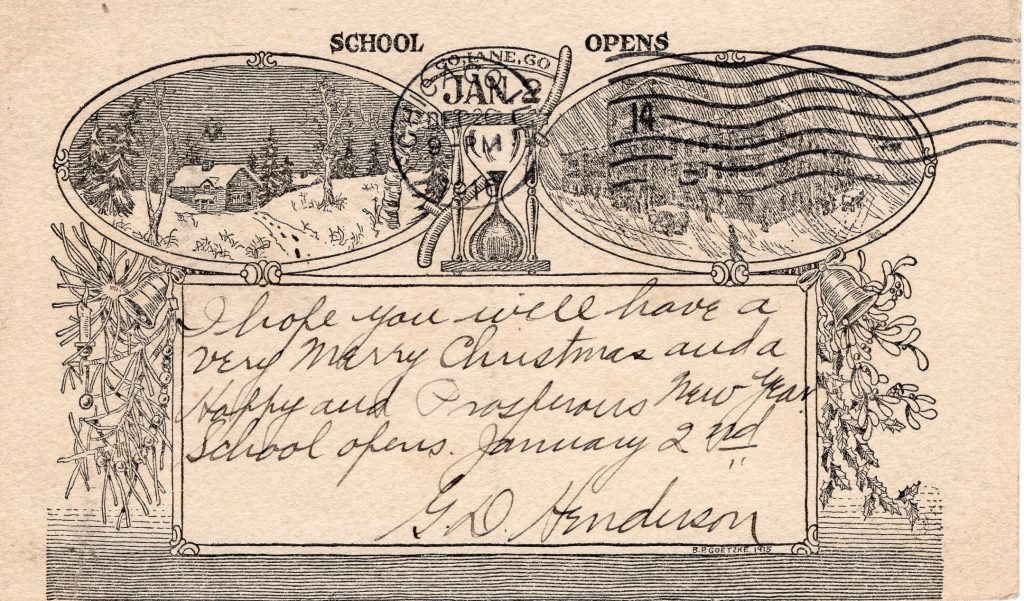 SCHOOL OPENS
CHICAGO, ILL
JAN. 2
DEC 26
9 - PM
14
I hope you will have a
very Merry Christmas and a
Happy and Prosperous New Year
School opens. January 2nd
G. D. Henderson
B. P. GOETZKE 1915